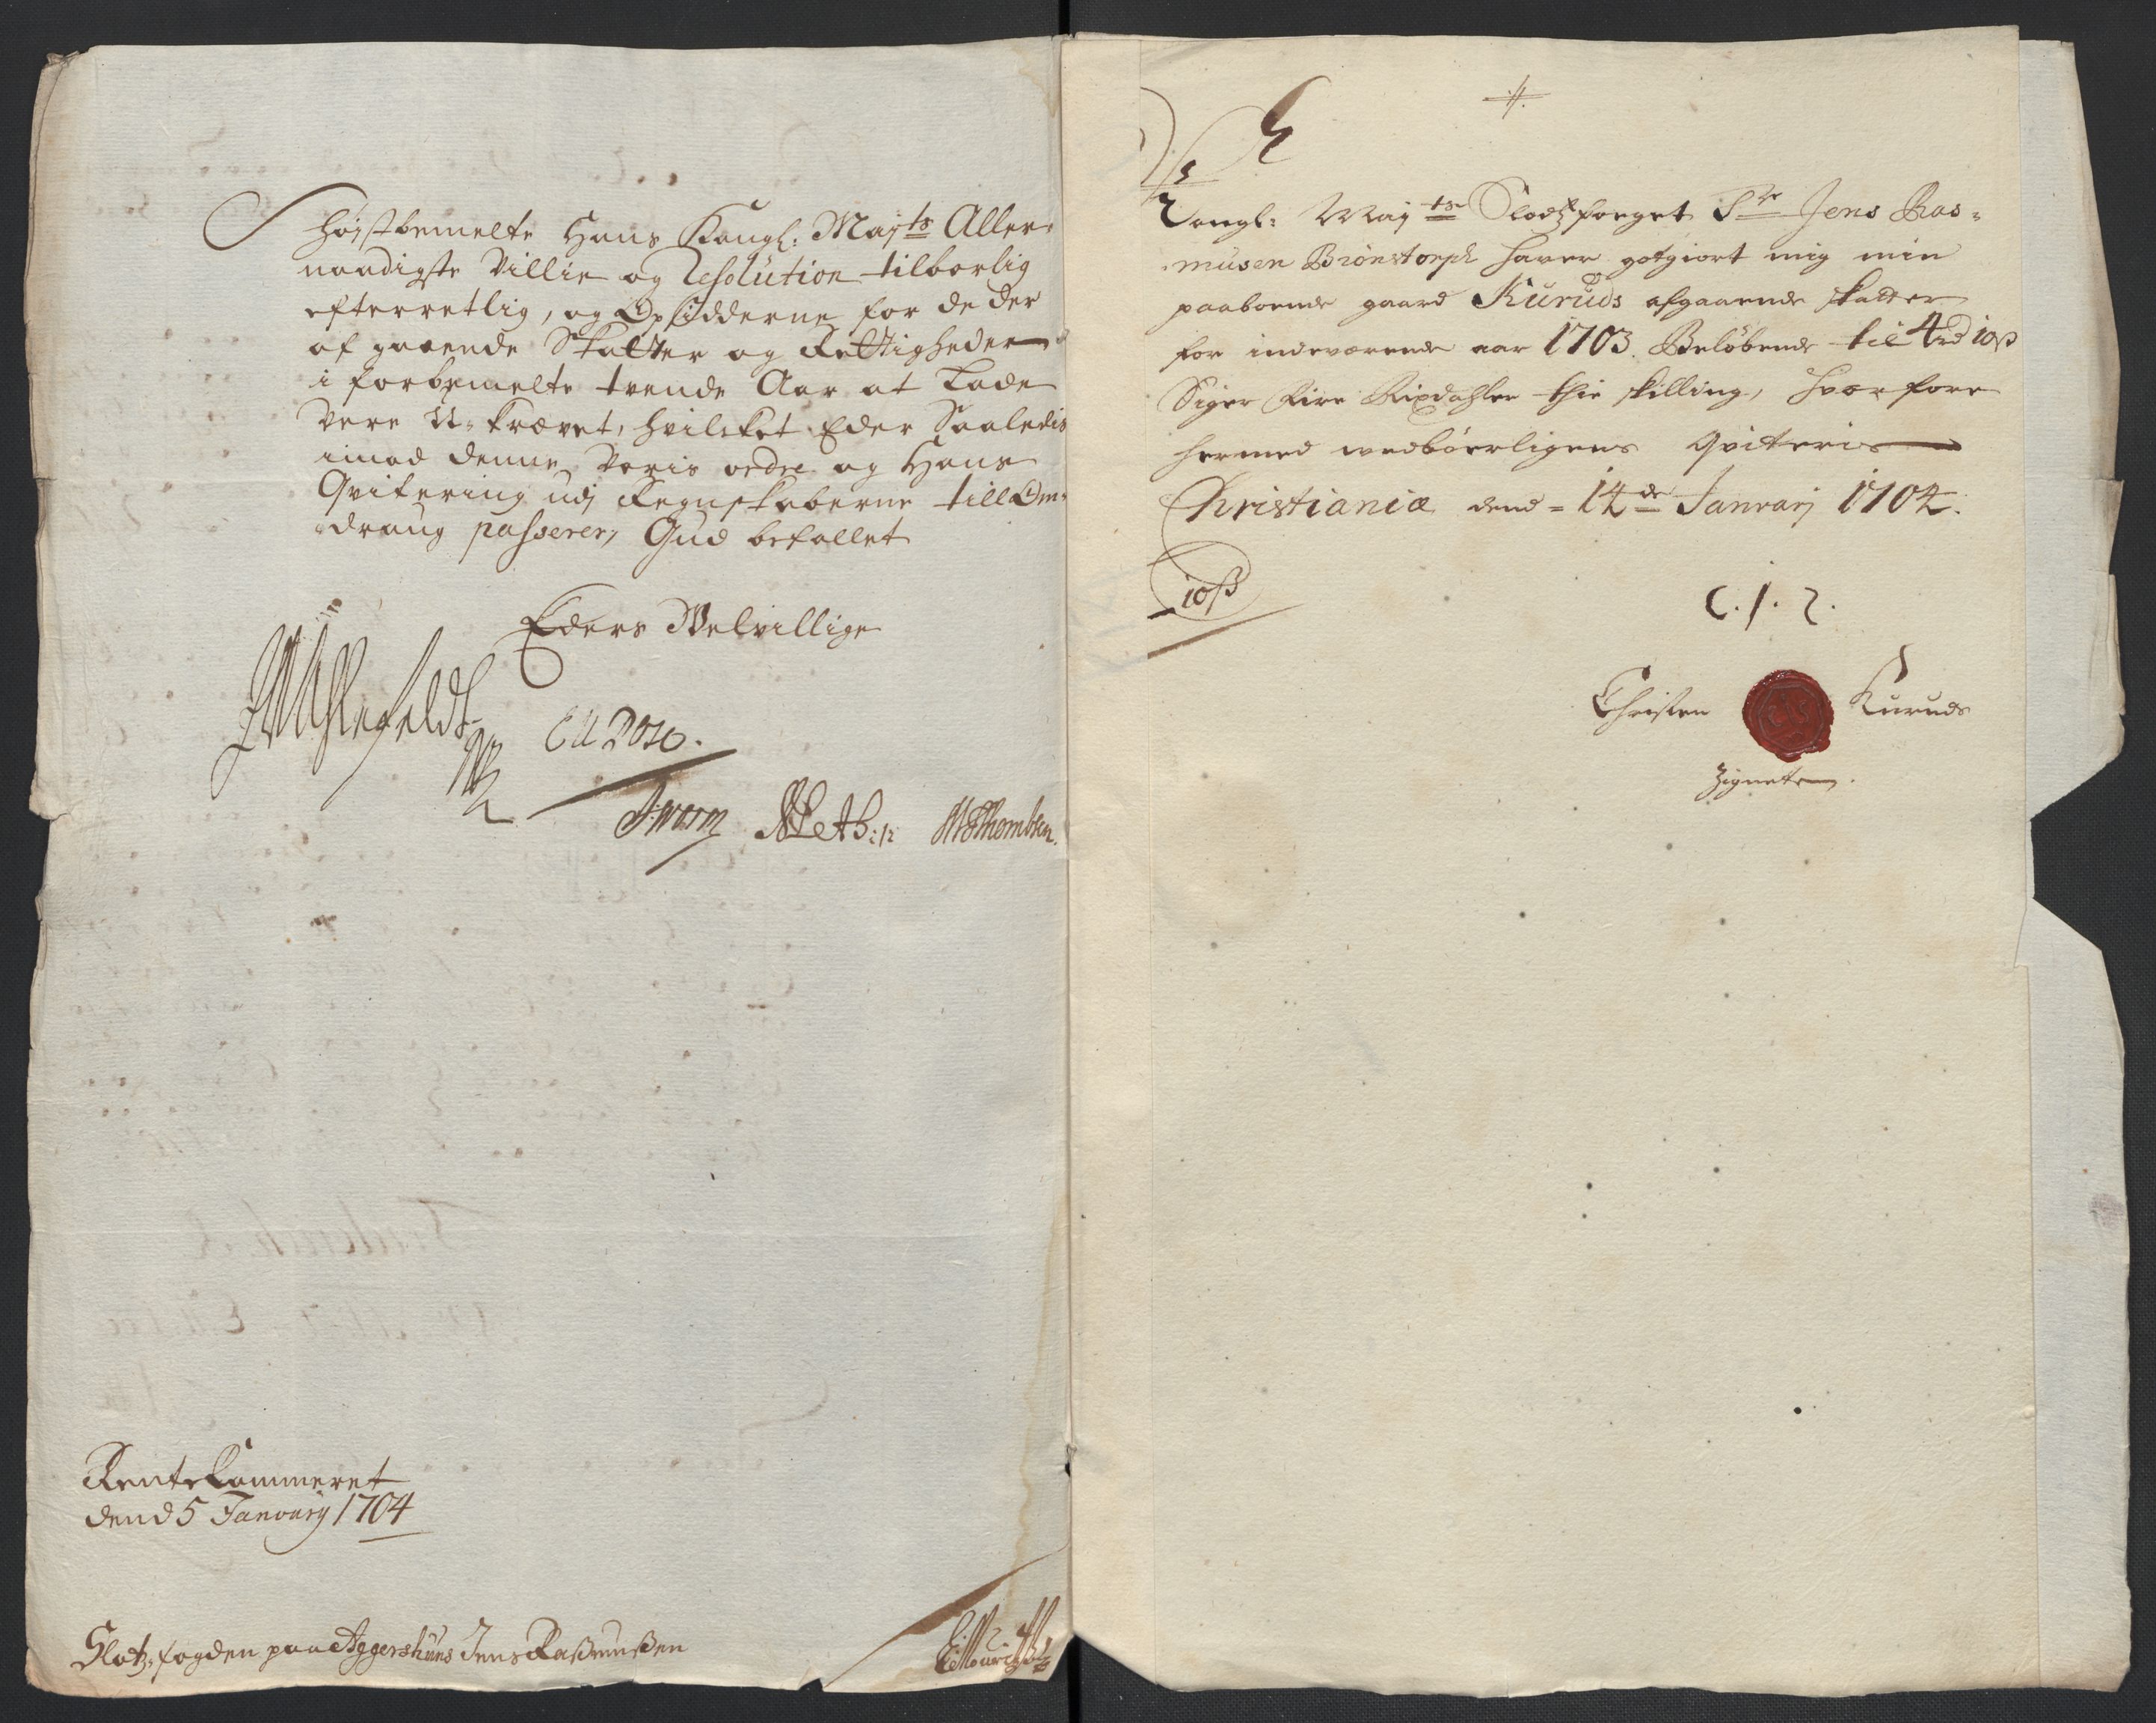 Høistbemelte Hans Kongl: Maj:ts Aller-
naadigste Villie og Resolution tilbørlig
efterretlig, og Opsidderne for de der
af gaaende Skatter og Rettigheder
i forbemelte tvende Aar at Lade
være U-krævet, hvilcket Eder Saaledis
imod denne voris ordre og Hans
Qvitering udj Regnskaberne till Om-
draug passerer, Gud befallet
Eders Velvillige
Worm Thombsen.
RenteKammeret
dend 5 January 1704
Slotz-fogden paa Aggershuus Jens Raßmußen
Kongl: Maj:ts Slodtzfoeget Sr Jens Ras-
musen Brønstorph haver gotgiort mig min
paaboende gaard Kuruds afgaaende skatter
for indeværende aar 1703. Beløbende til 4 rd 10 ß
Siger Fire Rixdahler thie skilling, hvorfore
hermed wedbørligens Qviteris
Christiania dend 14de Januarj 1704.
10 ß
C. J. S.
Christen Kuruds
Zignete.